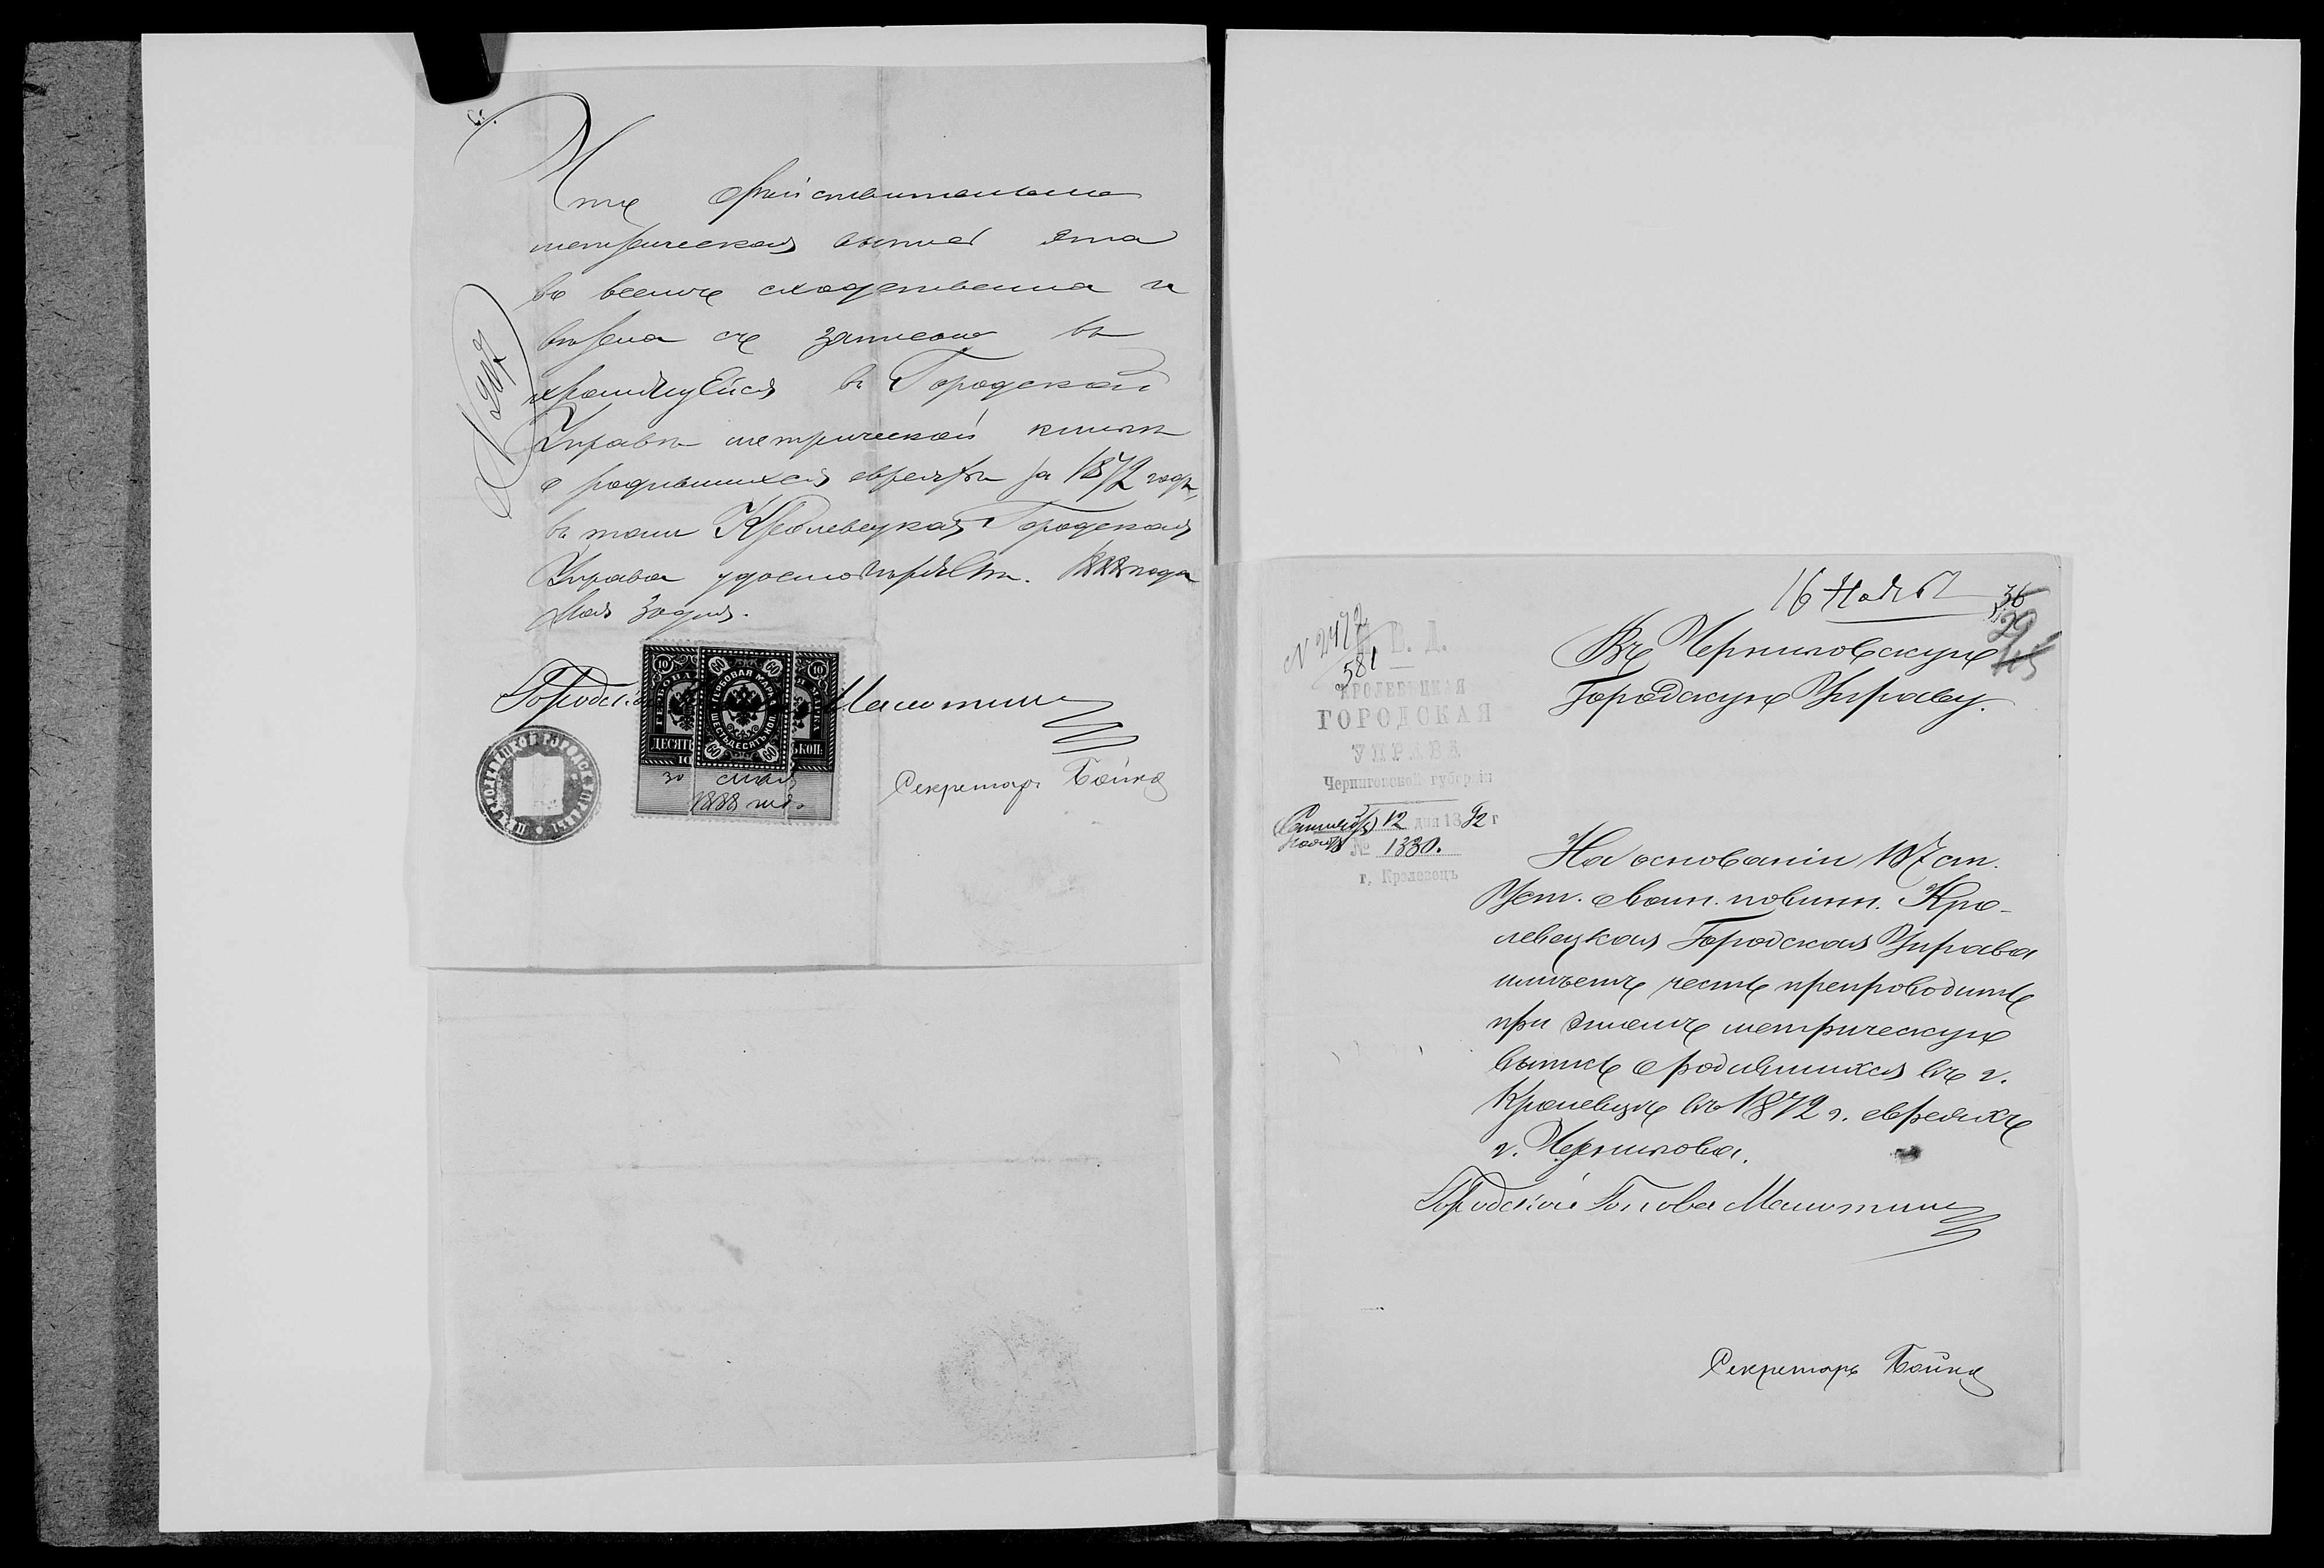 Что действительно
метрическая выпись эта
во всемъ сходственна и
вѣрна съ записью въ
хранящейся въ Городской
Управѣ метрической книгѣ
о родившихся евреяхъ за 1872 годъ,
въ томъ Кролевецкая Городская
Управа удостовѣряетъ. 1888 года
Мая 30 дня.
№ 907
Городской Малотин
ДЕСЯТЬ
ГЕРБОВАЯ МАРКА
ШЕСТЬДЕСЯТЪ КОП.
КОП.
10
60
60
10
60
60
30 мая
1888 года
Секретарь Бойко
16 Ноября
36
29
№ 2472
581
В. Д.
КРОЛЕВЕЦКАЯ
ГОРОДСКАЯ
УПРАВА
Черниговской губерніи
Сентября 12 дня 1892 г
Ноября № 1330.
г. Кролевецъ
Въ Черниговскую
Городскую Управу.
На основаніи 107 ст.
Уст. о воин. повинн. Кро-
левецкая Городская Управа
имѣетъ честь препроводить
при этомъ метрическую
выпись о родившихся въ г.
Кролевцѣ въ 1872 г. евреяхъ
г. Чернигова.
Городской Голова Малотин
Секретарь Бойко